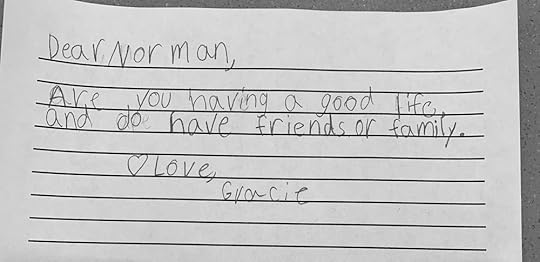 Dear Norman,
Are you having a good life,
and do have friends or family.
♡ Love,
Gracie